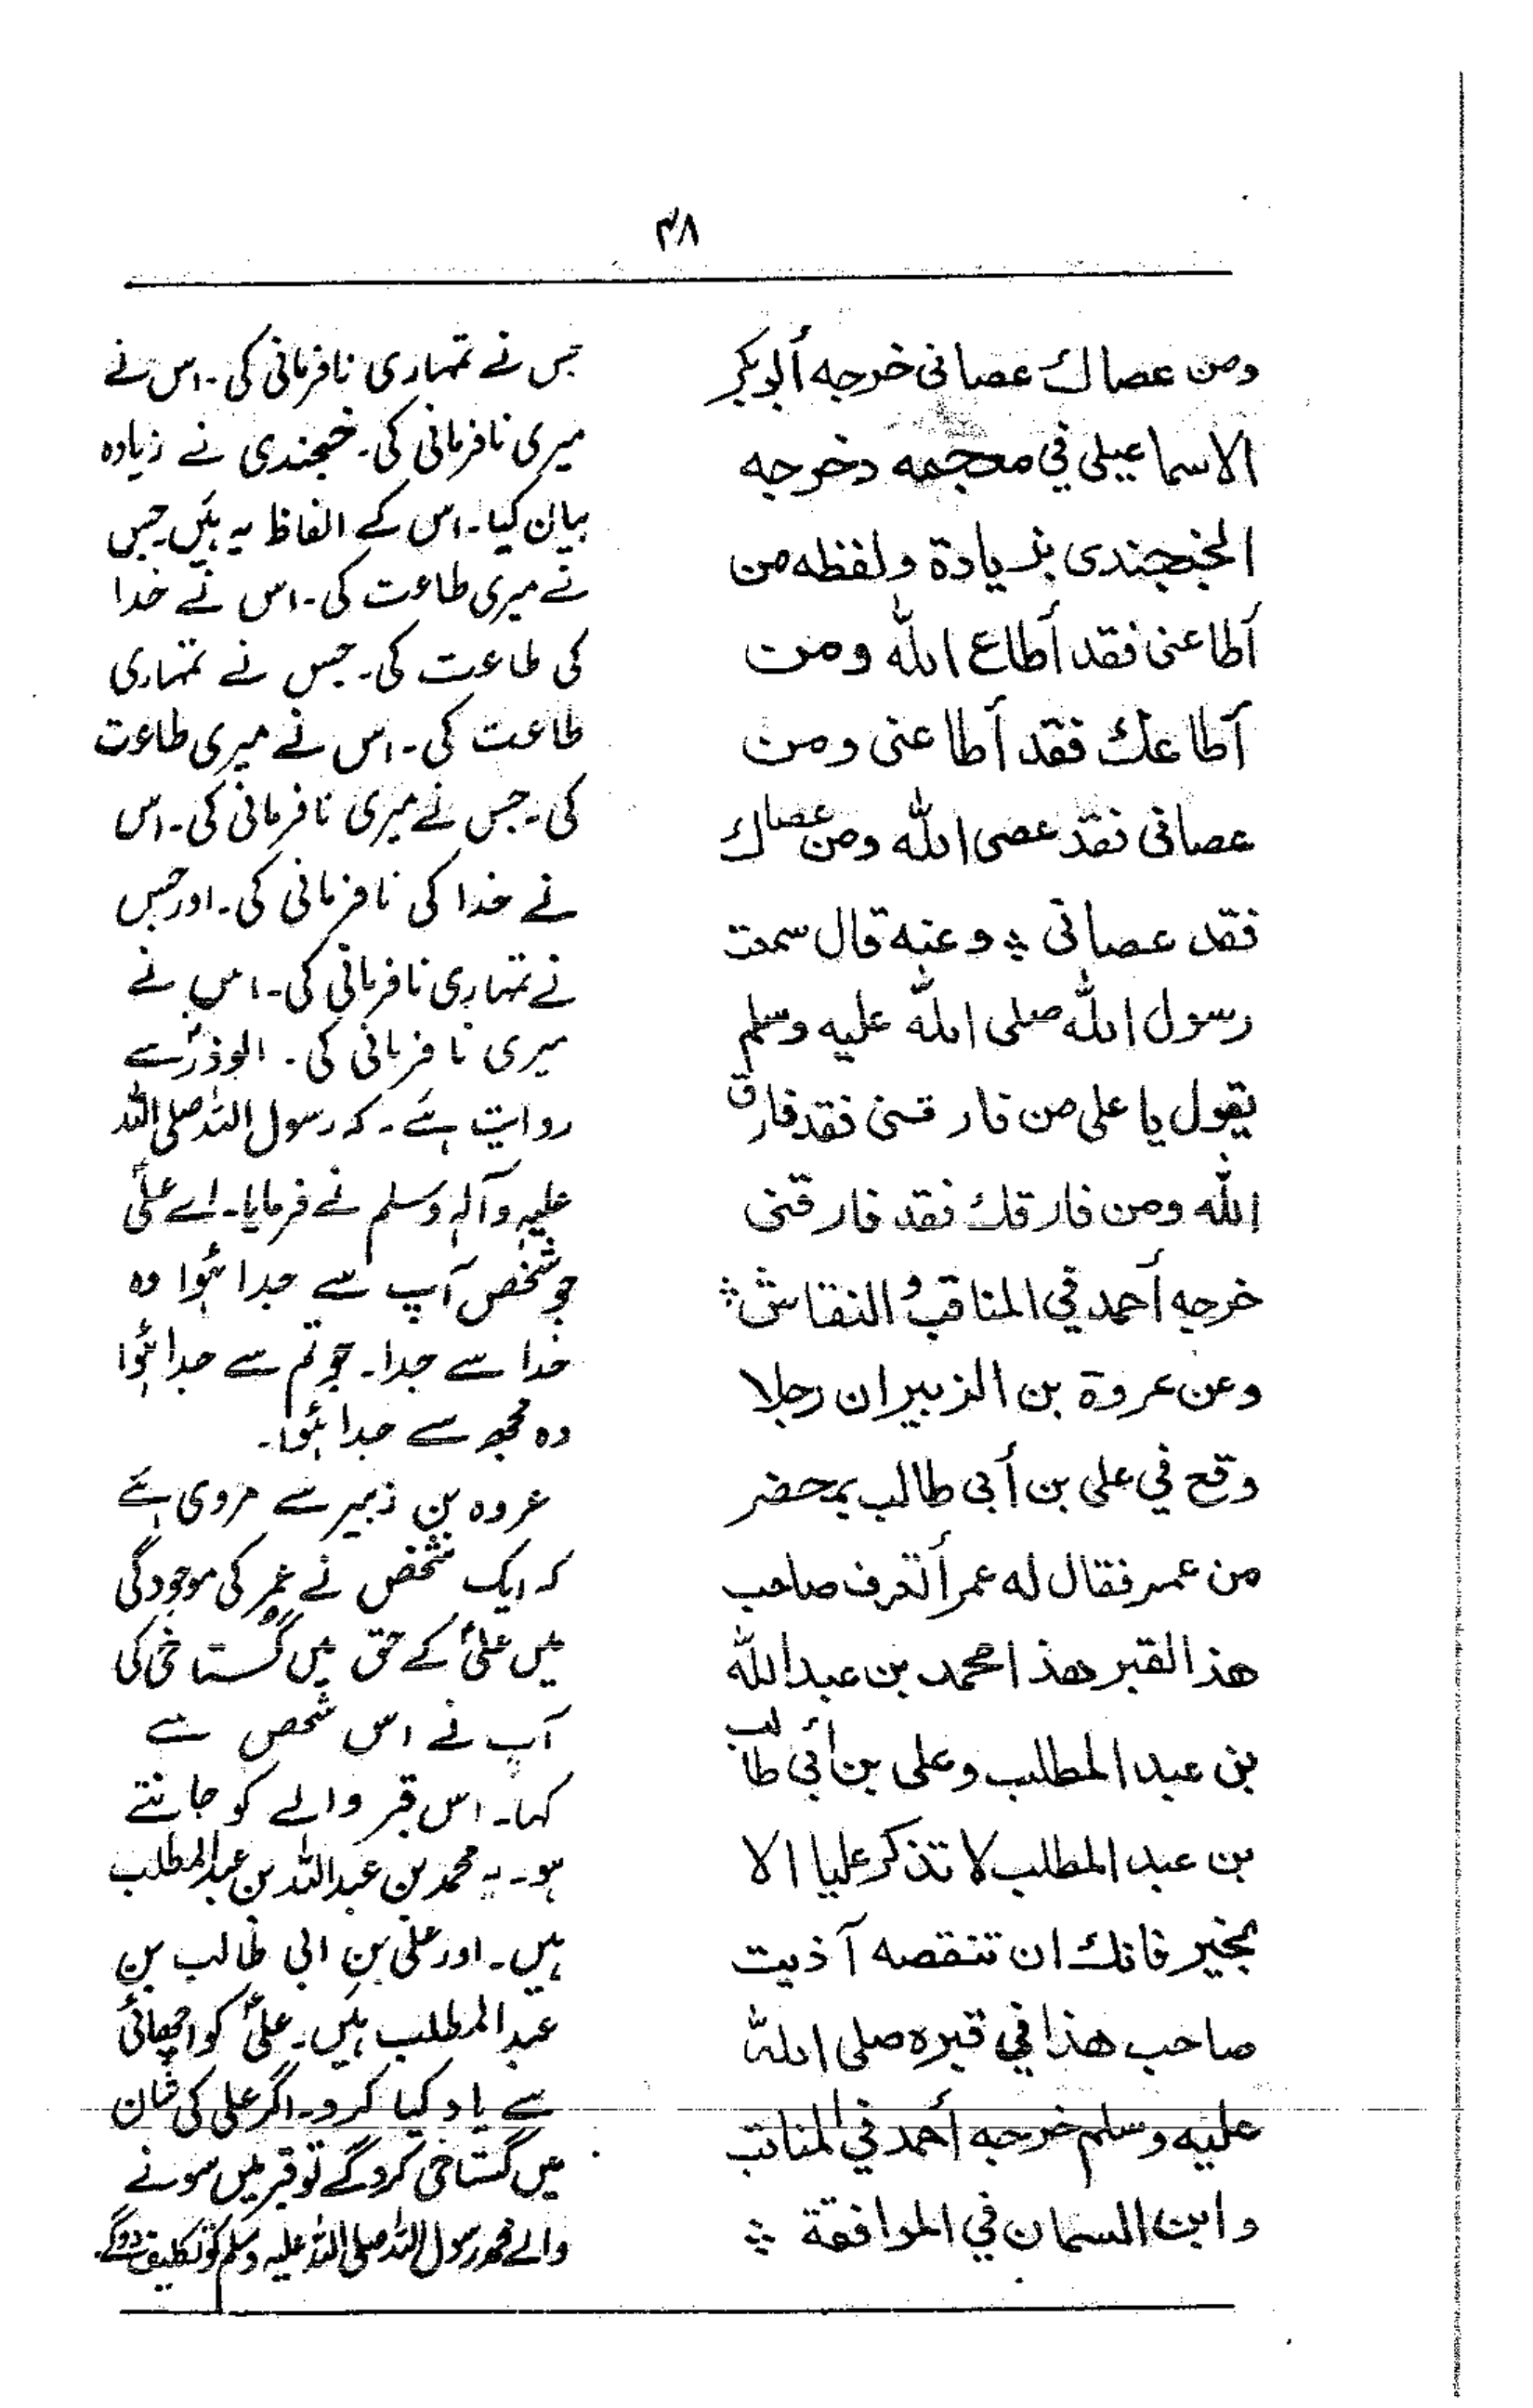 ۴۸
ومن عصاك عصانى خرجه أبو بكر
الاسماعيلى في معجمه وخرجه
الخنجندى بزيادة ولفظه من
أطاعنى فقد أطاع الله ومن
أطاعك فقد أطاعنى ومن
عصانى فقد عصى الله ومن عصاك
فقد عصانى ؞ وعنه قال سمعت
رسول الله صلى الله عليه وسلم
يقول يا على من فارقنى فقد فارق
الله ومن فارقك فقد فارقنى
خرجه أحمد في المناقب والنقاش ؞
وعن عروة بن الزبير ان رجلا
وقع في على بن أبى طالب بمحضر
من عمر فقال له عمر أتعرف صاحب
هذا القبر هذا محمد بن عبد الله
بن عبد المطلب وعلى بن أبي طالب
بن عبد المطلب لا تذكر عليا الا
بخير فانك ان تنقصه آذيت
صاحب هذا في قبره صلى الله
عليه وسلم خرجه أحمد في المناقب
وابن السمان في الموافقة ؞
جس نے تمہاری نافرمانی کی۔ اس نے
میری نافرمانی کی۔ خجندی نے زیادہ
بیان کیا۔ اس کے الفاظ یہ ہیں۔ جس
نے میری طاعت کی۔ اس نے خدا
کی طاعت کی۔ جس نے تمہاری
طاعت کی۔ اس نے میری طاعت
کی۔ جس نے میری نافرمانی کی۔ اس
نے خدا کی نافرمانی کی۔ اور جس
نے تمہاری نافرمانی کی۔ اس نے
میری نافرمانی کی۔ ابوذرؓ سے
روایت ہے۔ کہ رسول اللہ صلی اللہ
علیہ وآلہ وسلم نے فرمایا۔ اے علیؑ
جو شخص آپ سے جدا ہؤا وہ
خدا سے جدا۔ جو تم سے جدا ہؤا
وہ مجھ سے جدا ہؤا۔
عروہ بن زبیر سے مروی ہے
کہ ایک شخص نے عمر کی موجودگی
میں علیؑ کے حق میں گستاخی کی
آپ نے اس شخص سے
کہا۔ اس قبر والے کو جانتے
ہو۔ یہ محمد بن عبداللہ بن عبدالمطلب
ہیں۔ اور علی بن ابی طالب بن
عبد المطلب ہیں۔ علیؑ کو اچھائی
سے یاد کیا کرو۔ اگر علی کی شان
میں گستاخی کرو گے تو قبر میں سونے
والے محمد رسول اللہ صلی اللہ علیہ وسلم کو تکلیف دوگے۔